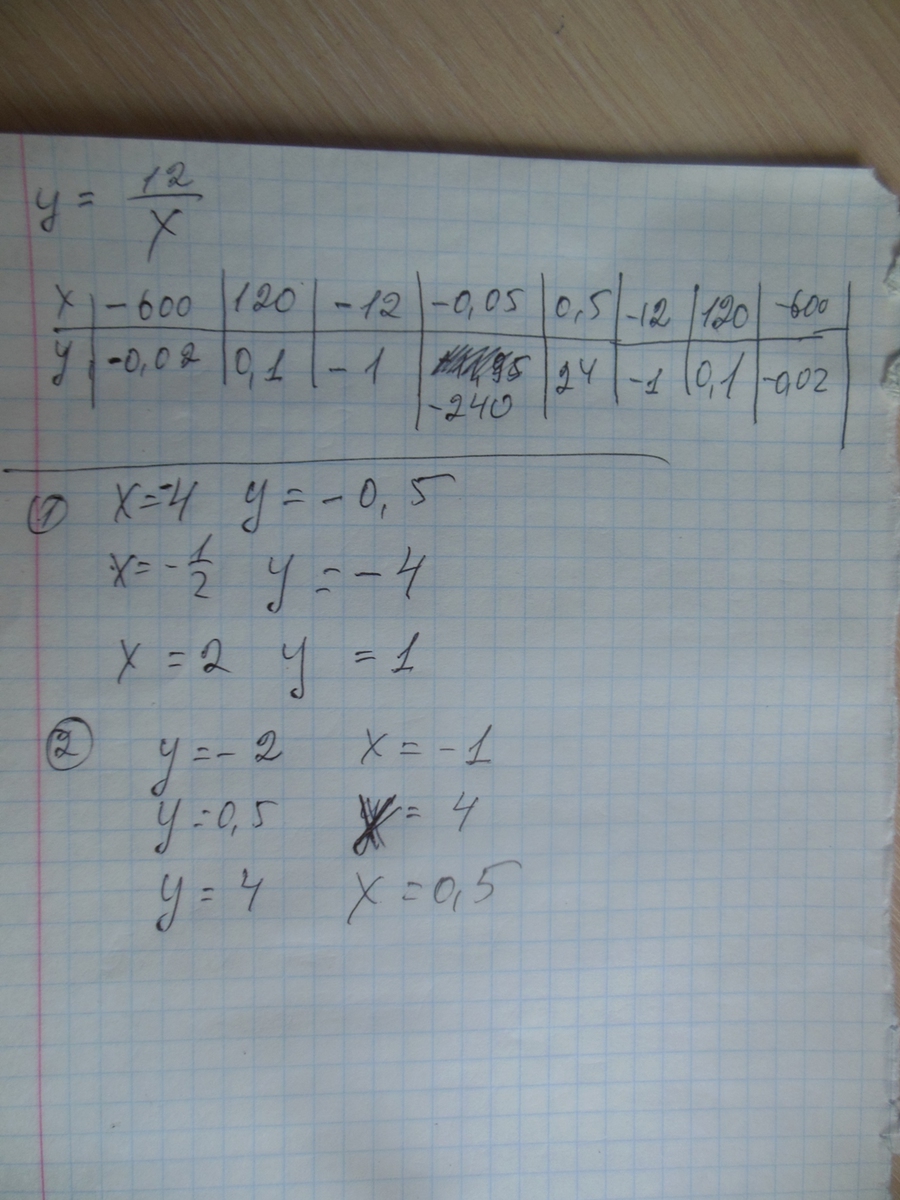 y = 12/x
x | -600 | 120 | -12 | -0,05 | 0,5 | -12 | 120 | -600
y | -0,02 | 0,1 | -1 | -240 | 24 | -1 | 0,1 | -0,02
① x=-4 y = -0,5
x=-1/2 y = -4
x = 2 y = 1
② y=-2 x = -1
y=0,5 x = 4
y = 4 x = 0,5